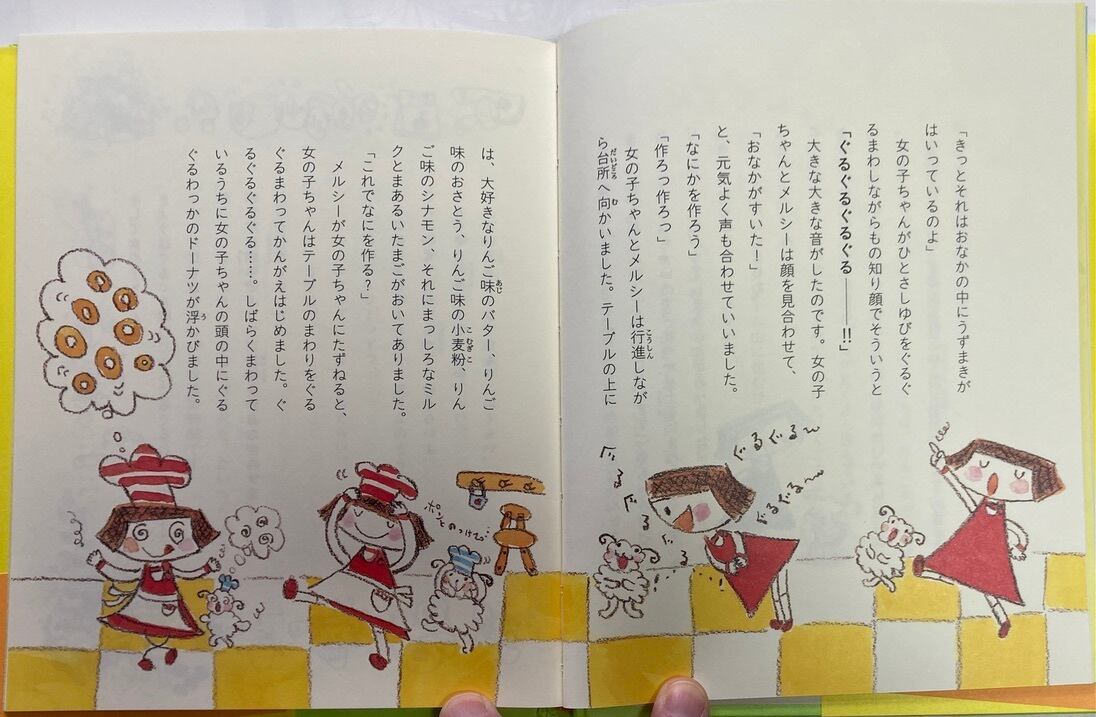 「きっとそれはおなかの中にうずまきが
はいっているのよ」
女の子ちゃんがひとさしゆびをぐるぐ
るまわしながらもの知り顔でそういうと
「ぐるぐるぐるぐる――!!」
大きな大きな音がしたのです。女の子
ちゃんとメルシーは顔を見合わせて、
「おなかがすいた!」
と、元気よく声も合わせていいました。
「なにかを作ろう」
「作ろっ作ろっ」
女の子ちゃんとメルシーは行進しなが
ら台所へ向かいました。テーブルの上に
は、大好きなりんご味のバター、りんご
味のおさとう、りんご味の小麦粉、りん
ご味のシナモン、それにまっしろなミル
クとまあるいたまごがおいてありました。
「これでなにを作る?」
メルシーが女の子ちゃんにたずねると、
女の子ちゃんはテーブルのまわりをぐる
ぐるまわってかんがえはじめました。ぐ
るぐるぐるぐる……。しばらくまわって
いるうちに女の子ちゃんの頭の中にぐる
ぐるわっかのドーナツが浮かびました。
ぐるぐる〜
ぐるぐる〜
ぐるぐる
ポンとのっけて